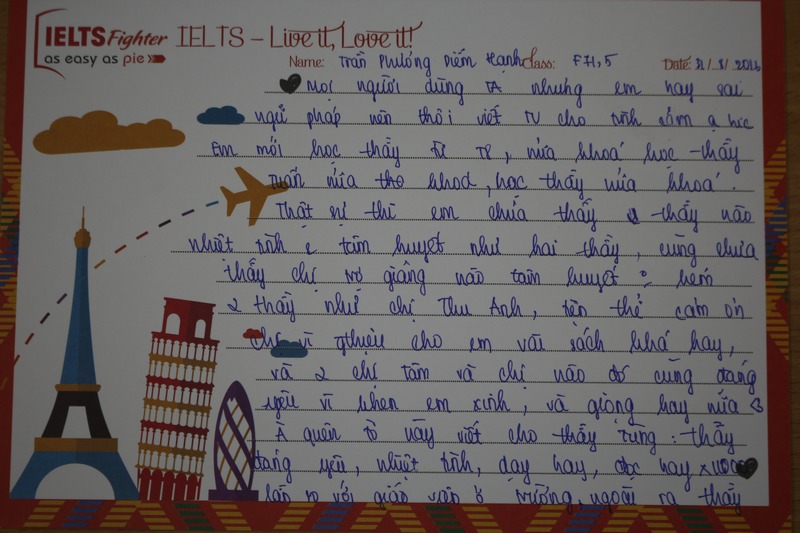 IELTS Fighter IELTS – Live it, Love it!
as easy as pie
Name: Trần Phương Diễm Hạnh Class: F71,5 Date: 21/8/2016
Mọi người dùng TA nhưng em hay sai
ngữ pháp nên thôi viết TV cho tình cảm ạ
Em mới học thầy từ T8, nửa khoá học thầy
Tuấn nửa khoá, học thầy nửa khoá.
Thật sự thì em chưa thấy thầy nào
nhiệt tình & tâm huyết như hai thầy, cũng chưa
thấy chị trợ giảng nào tâm huyết kém
2 thầy như chị Thu Anh, tiện thể cảm ơn
chị vì gthiệu cho em vài sách khá hay,
và 2 chị Tâm và chị nào đó cũng đáng
yêu vì khen em xinh, và giọng hay nữa <3
À quên tờ này viết cho thầy Tùng: thầy
đáng yêu, nhiệt tình, dạy hay, hay
lần so với giáo viên ở trường, ngoài ra thầy